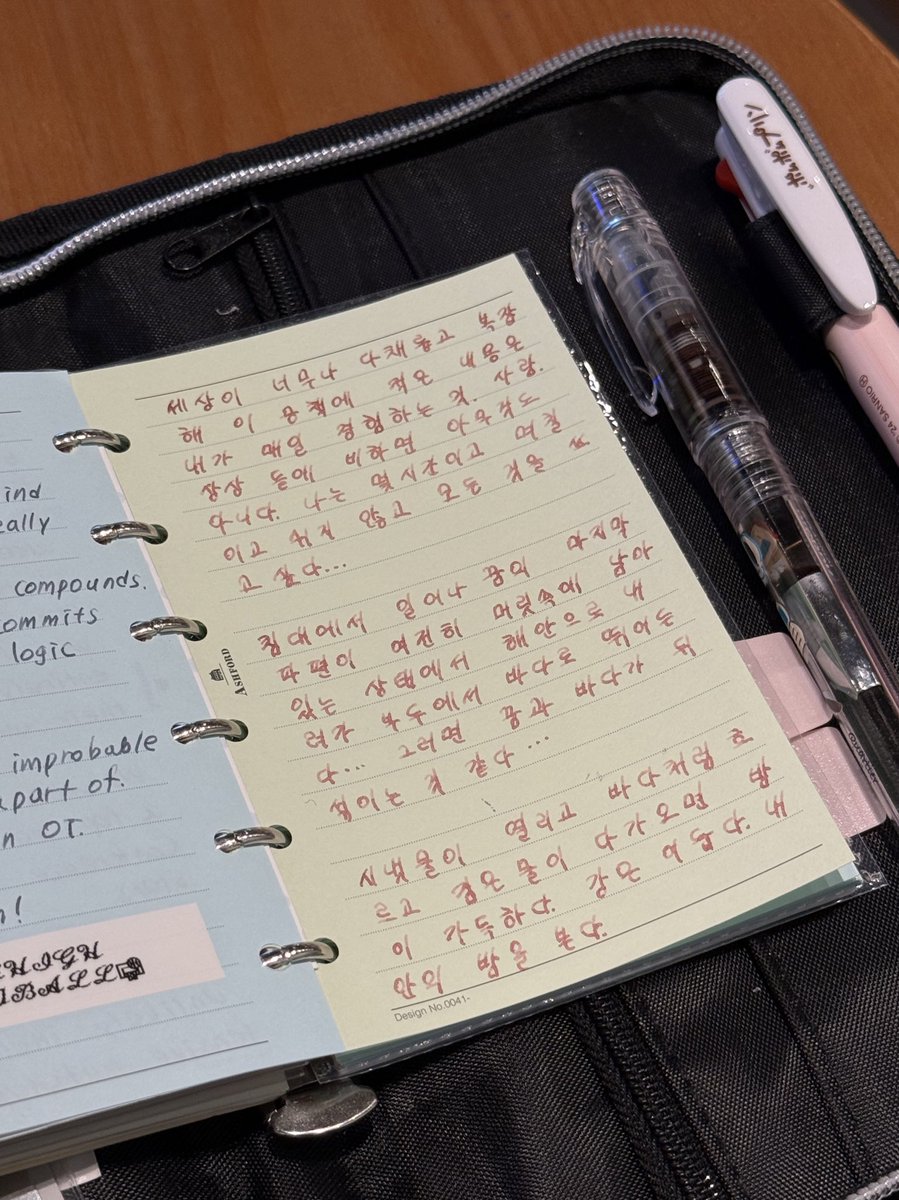 ind
eally
compounds.
commits
logic
improbable
part of.
n OT.
!
HIGH
BALL
ASHFORD
세상이 너무나 다채롭고 복잡
해 이 공책에 적은 내용은
내가 매일 경험하는 것. 사람.
상상 등에 비하면 아무것도
아니다. 나는 몇시간이고 며칠
이고 쉬지 않고 모든 것을 쓰
고 싶다...
침대에서 일어나 꿈의 마지막
파편이 여전히 머릿속에 남아
있는 상태에서 해안으로 내
려가 부두에서 바다로 뛰어든
다... 그러면 꿈과 바다가 뒤
섞이는 것 같다...
시냇물이 열리고 바다처럼 흐
르고 검은 물이 다가오면 밤
이 가득하다. 강은 어둡다. 내
안의 밤을 본다.
Design No.0041-
ポムポムプリン
©'24 SANRIO